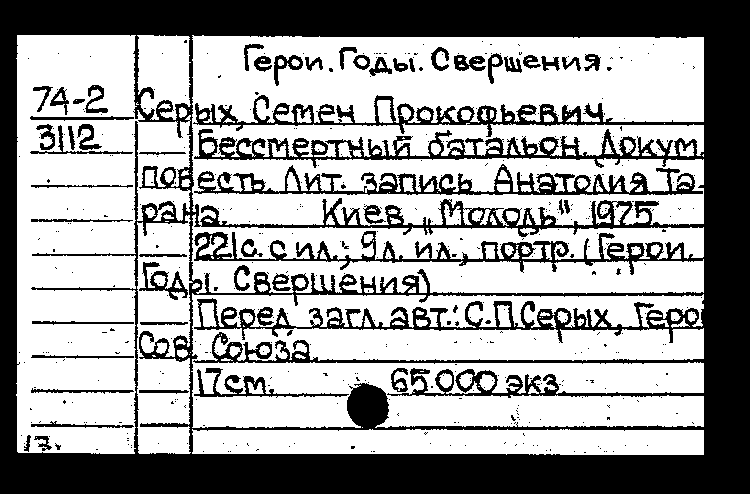 Герои. Годы. Свершения.
74-2 Серых, Семен Прокофьевич.
3112 Бессмертный батальон. Докум.
повесть. Лит. запись Анатолия Та-
рана. Киев, „Молодь", 1975.
221с. с ил.; 9л. ил., портр. (Герои.
Годы. Свершения)
Перед загл. авт.: С.П.Серых, Герой
Сов. Союза.
17см. 65.000 экз.
17.